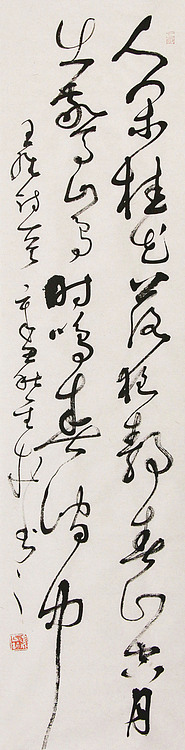 人闲桂花落夜静春山空月
出惊山鸟时鸣春涧中
王维诗 辛丑秋 书